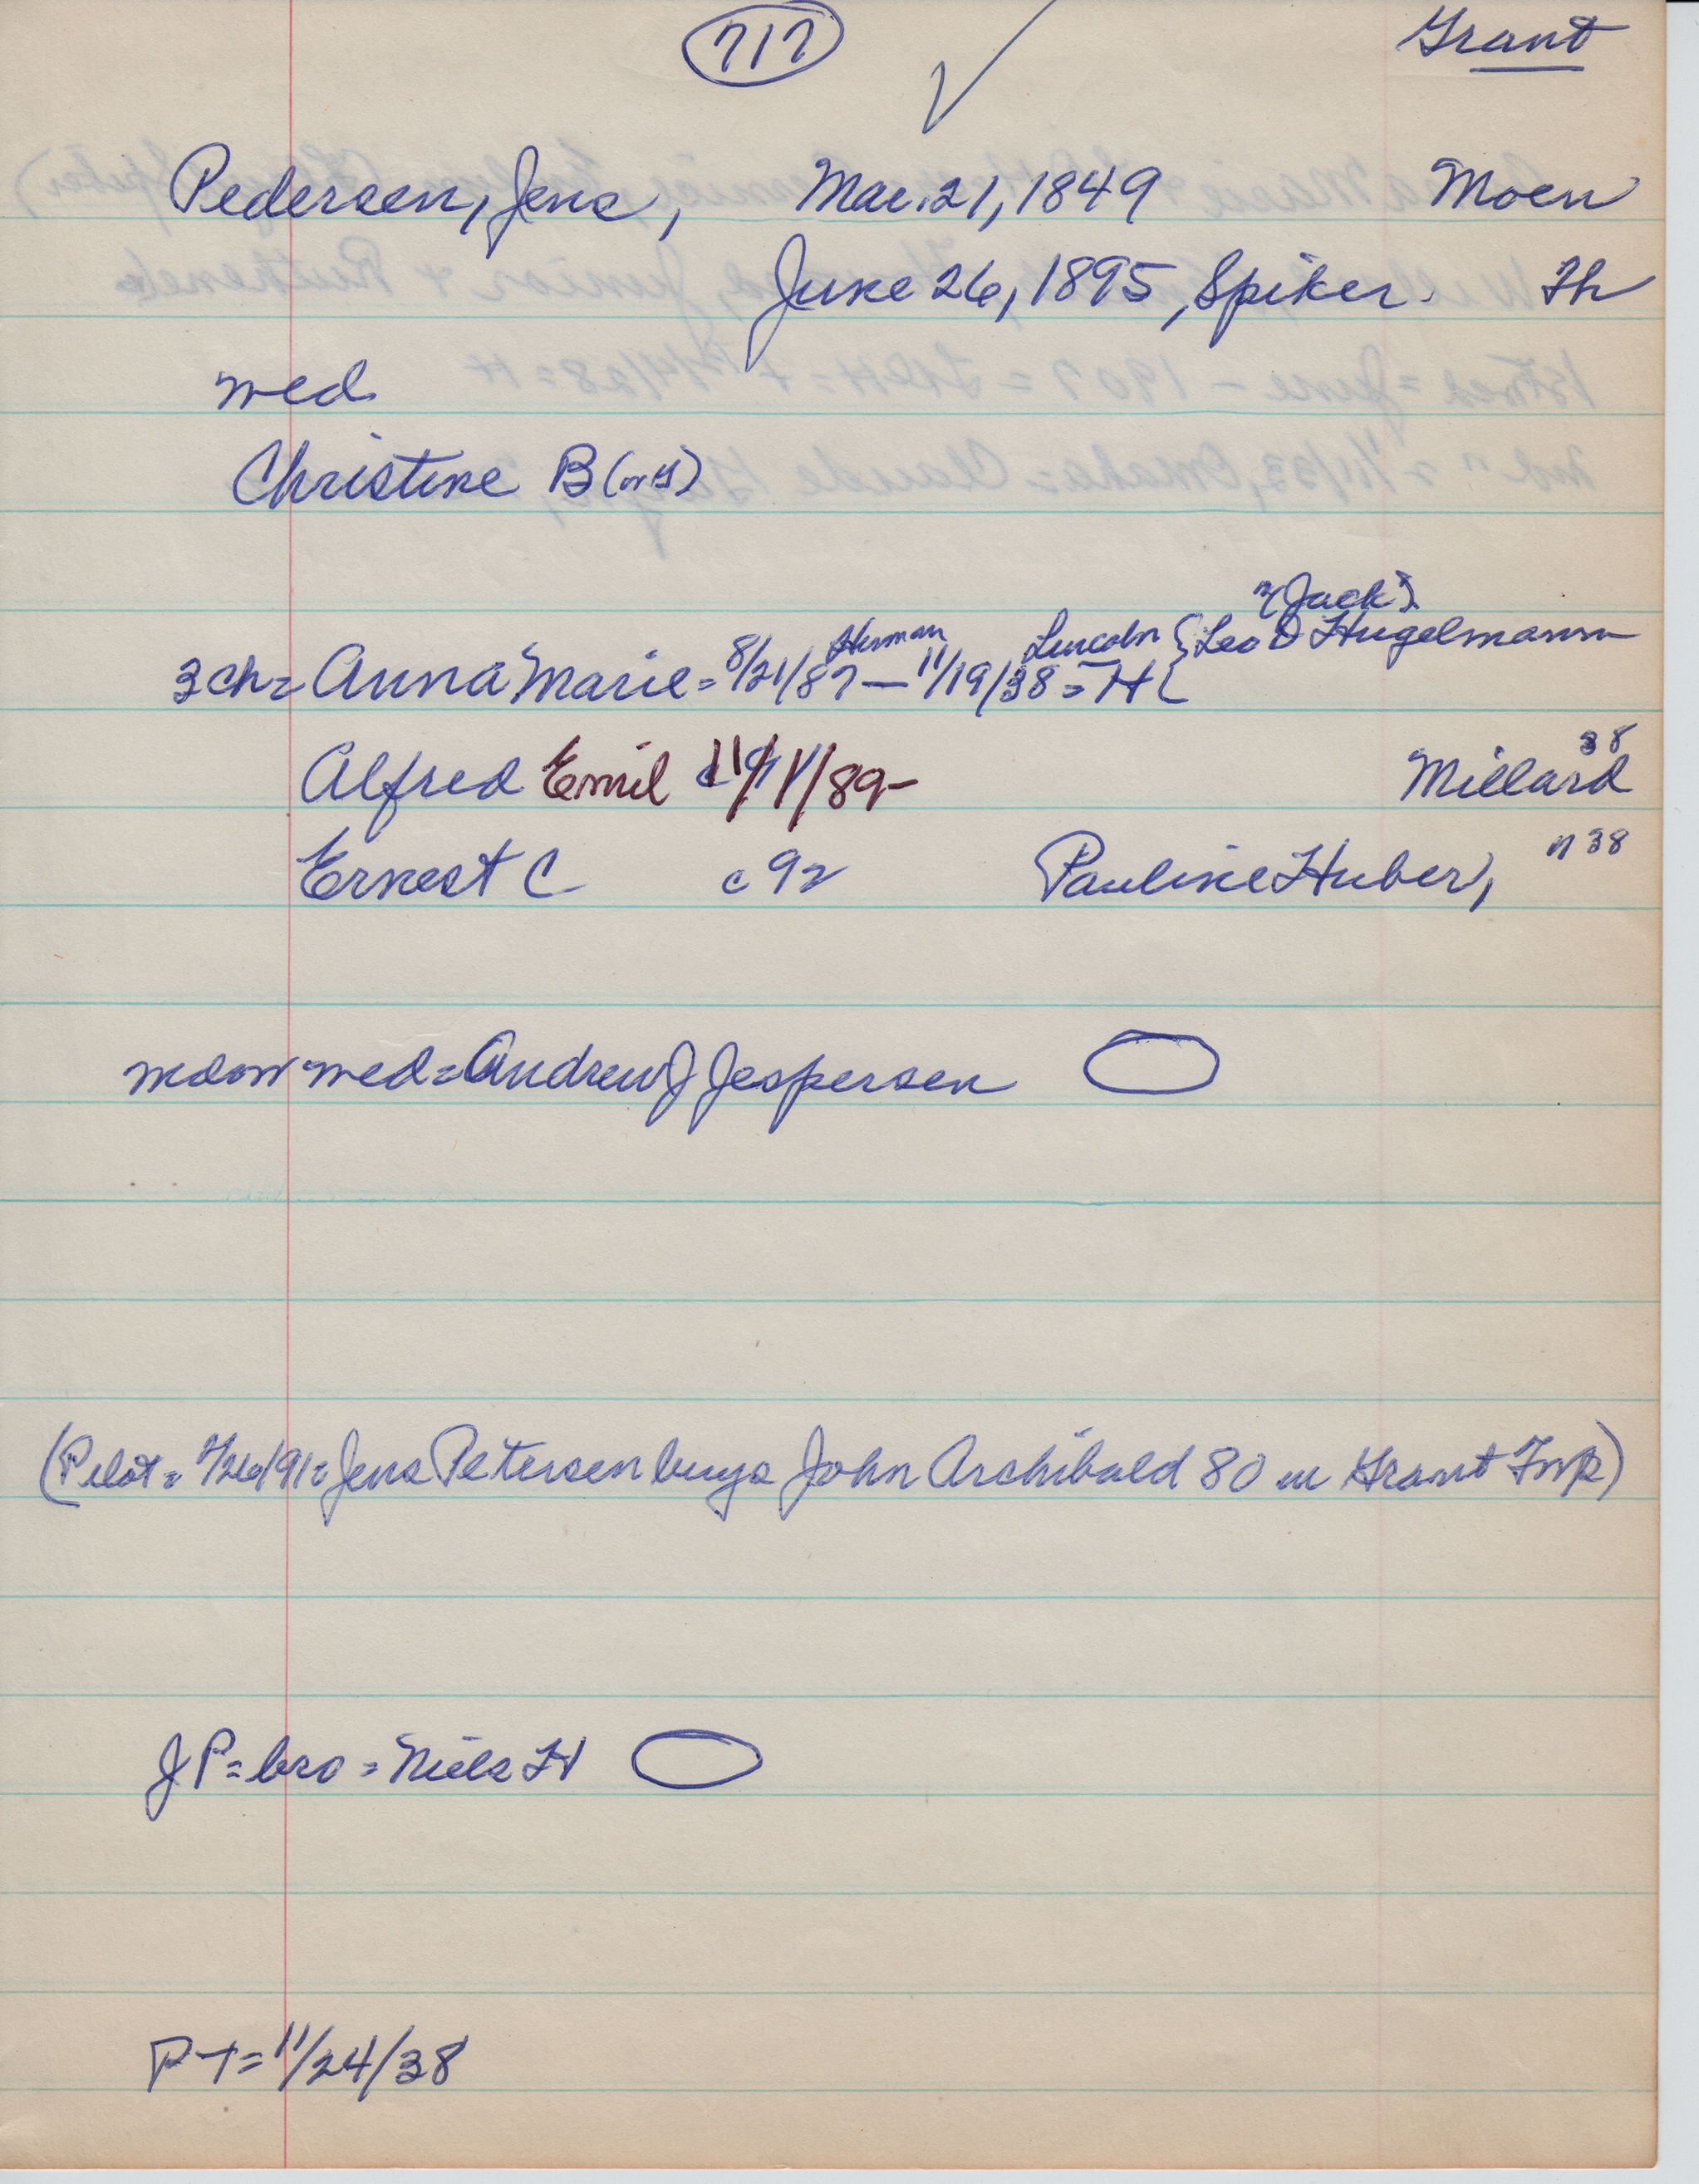 717 Grant
Pedersen, Jens, Mar. 21, 1849 Moen
June 26, 1895, Spiker. Th
wed
Christine B (or G)
(Jack)
Herman Lincoln { Leo D Hugelmann
3 ch = Anna Marie = 8/21/87 — 11/19/38 = H {
38
Alfred Emil 11/1/89- Millard
Ernest C c 92 Pauline Huber, n 38
wdow wed = Andrew J Jespersen
(Pilot = 7/26/91 = Jens Petersen buys John Archibald 80 in Grant Twp)
J P = bro = Niels H
P T = 11/24/38